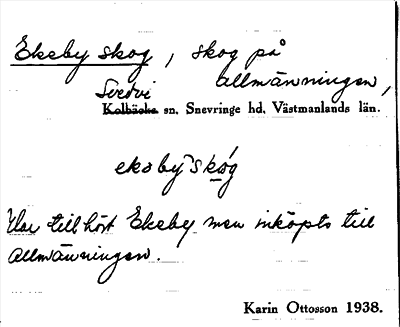 Ekeby skog, skog på
allmänningen,
Svedvi
Kolbäcks sn. Snevringe hd. Västmanlands län.
ekebyskóg
Har tillhört Ekeby men inköpts till
allmänningen.
Karin Ottosson 1938.